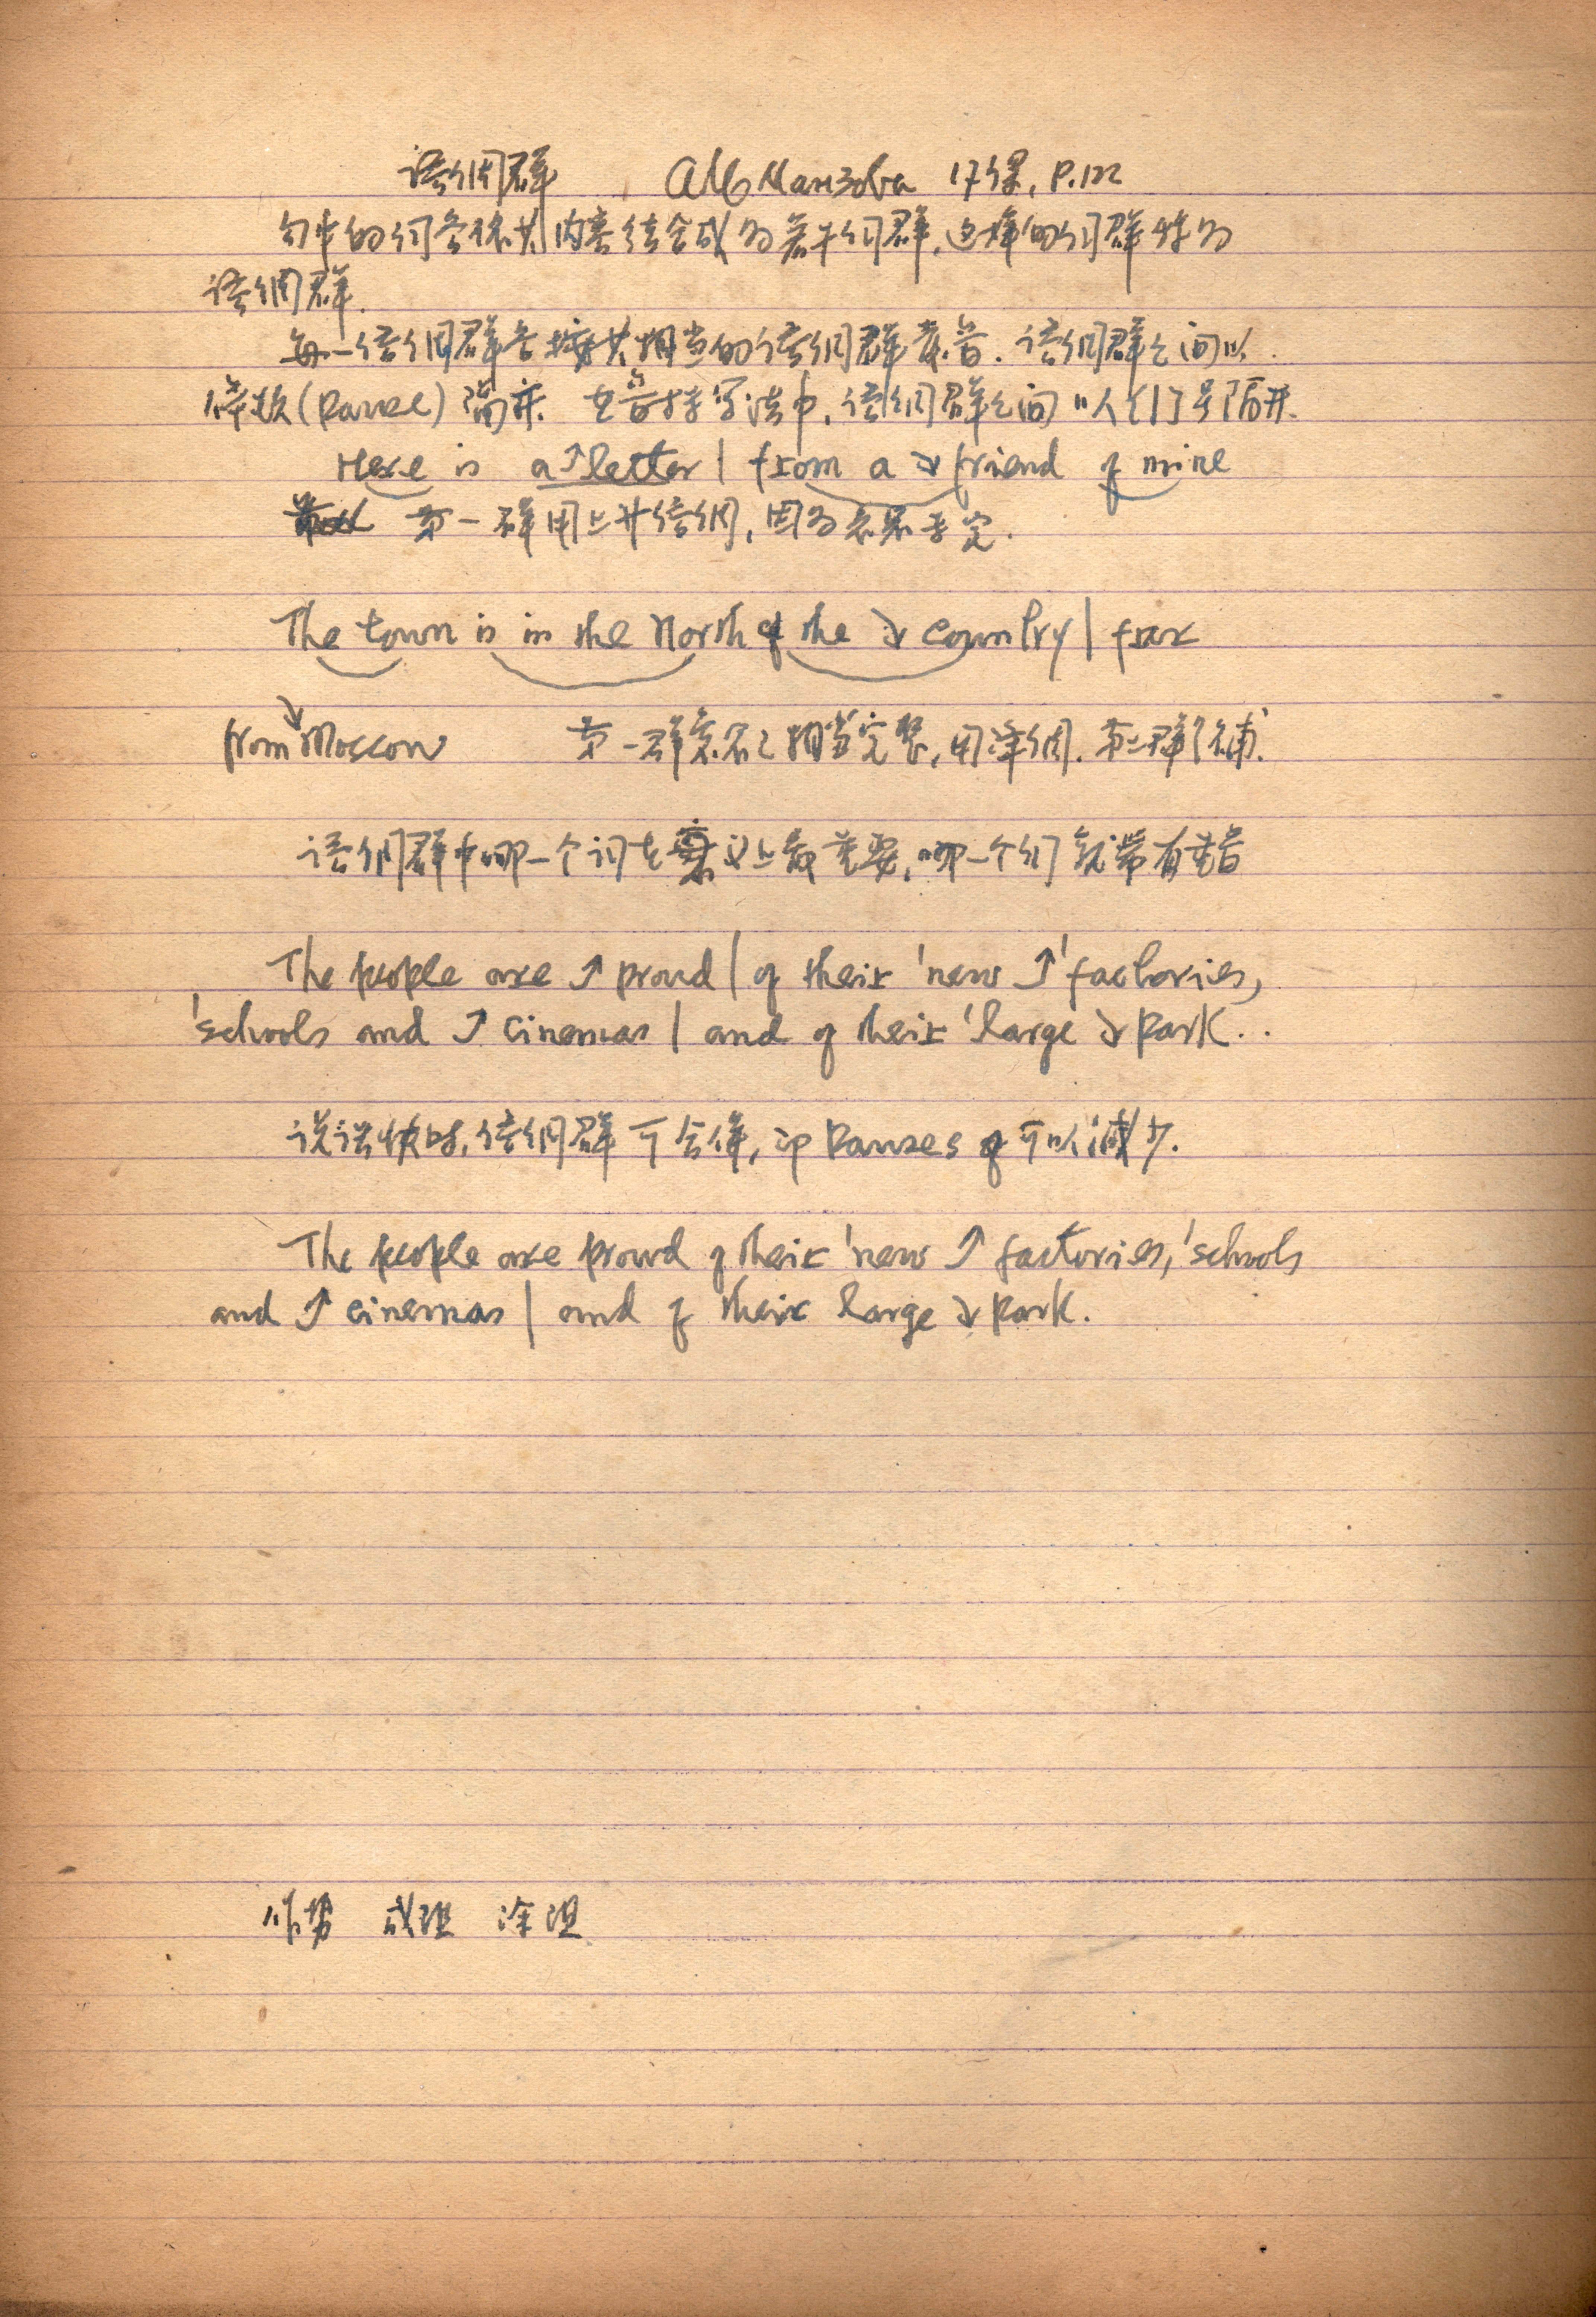 语调群 17课, P.122
句中的词各依其内容结合成为若干词群,这样的词群称为
语调群.
每一语调群各按其相当的语调群发音. 语调群之间以
停顿(Pause)隔开. 在音标写法中,语调群之间以 | 号隔开.
Here is a ↑letter | from a ↘ friend of mine
第一群用上升语调,因为意思未定.
The town is in the North of the ↘ country | far
from ↘ Moscow 第一群意思已相当完整,用降调. 第二群系补.
语调群中哪一个词在意义上最重要,哪一个词就带有重音
The people are ↑ proud | of their 'new ↑ 'factories,
'schools and ↑ cinemas | and of their 'large ↘ park..
说话快时,语调群可合併,即 Pauses 可以减少.
The people are proud of their 'new ↑ factories, 'schools
and ↑ cinemas | and of their large ↘ park.